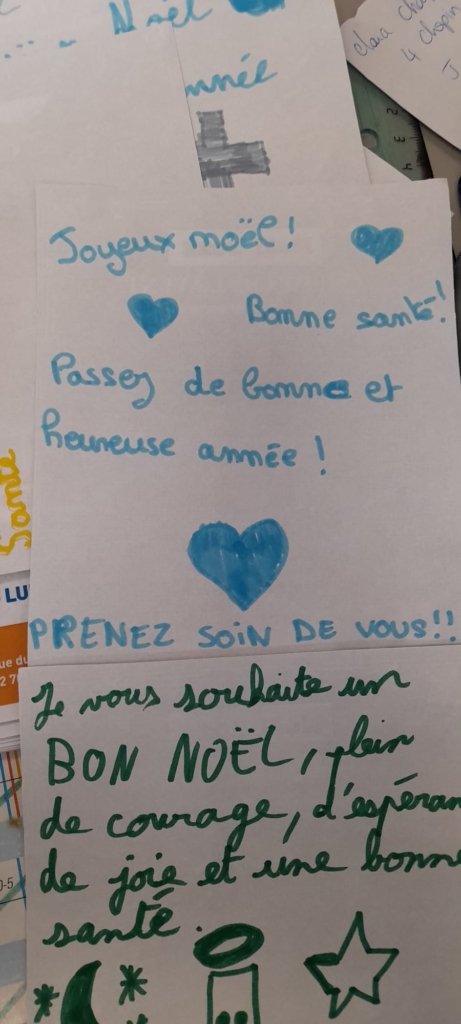 Noël
nnée
clara
4 chopin
J
Joyeux moël!
Bonne santé!
Passez de bonne et
heureuse année!
PRENEZ SOIN DE VOUS!!
Santé
LU
Je vous souhaite un
BON NOËL, plein
de courage, d'espéran
de joie et une bonne
santé.